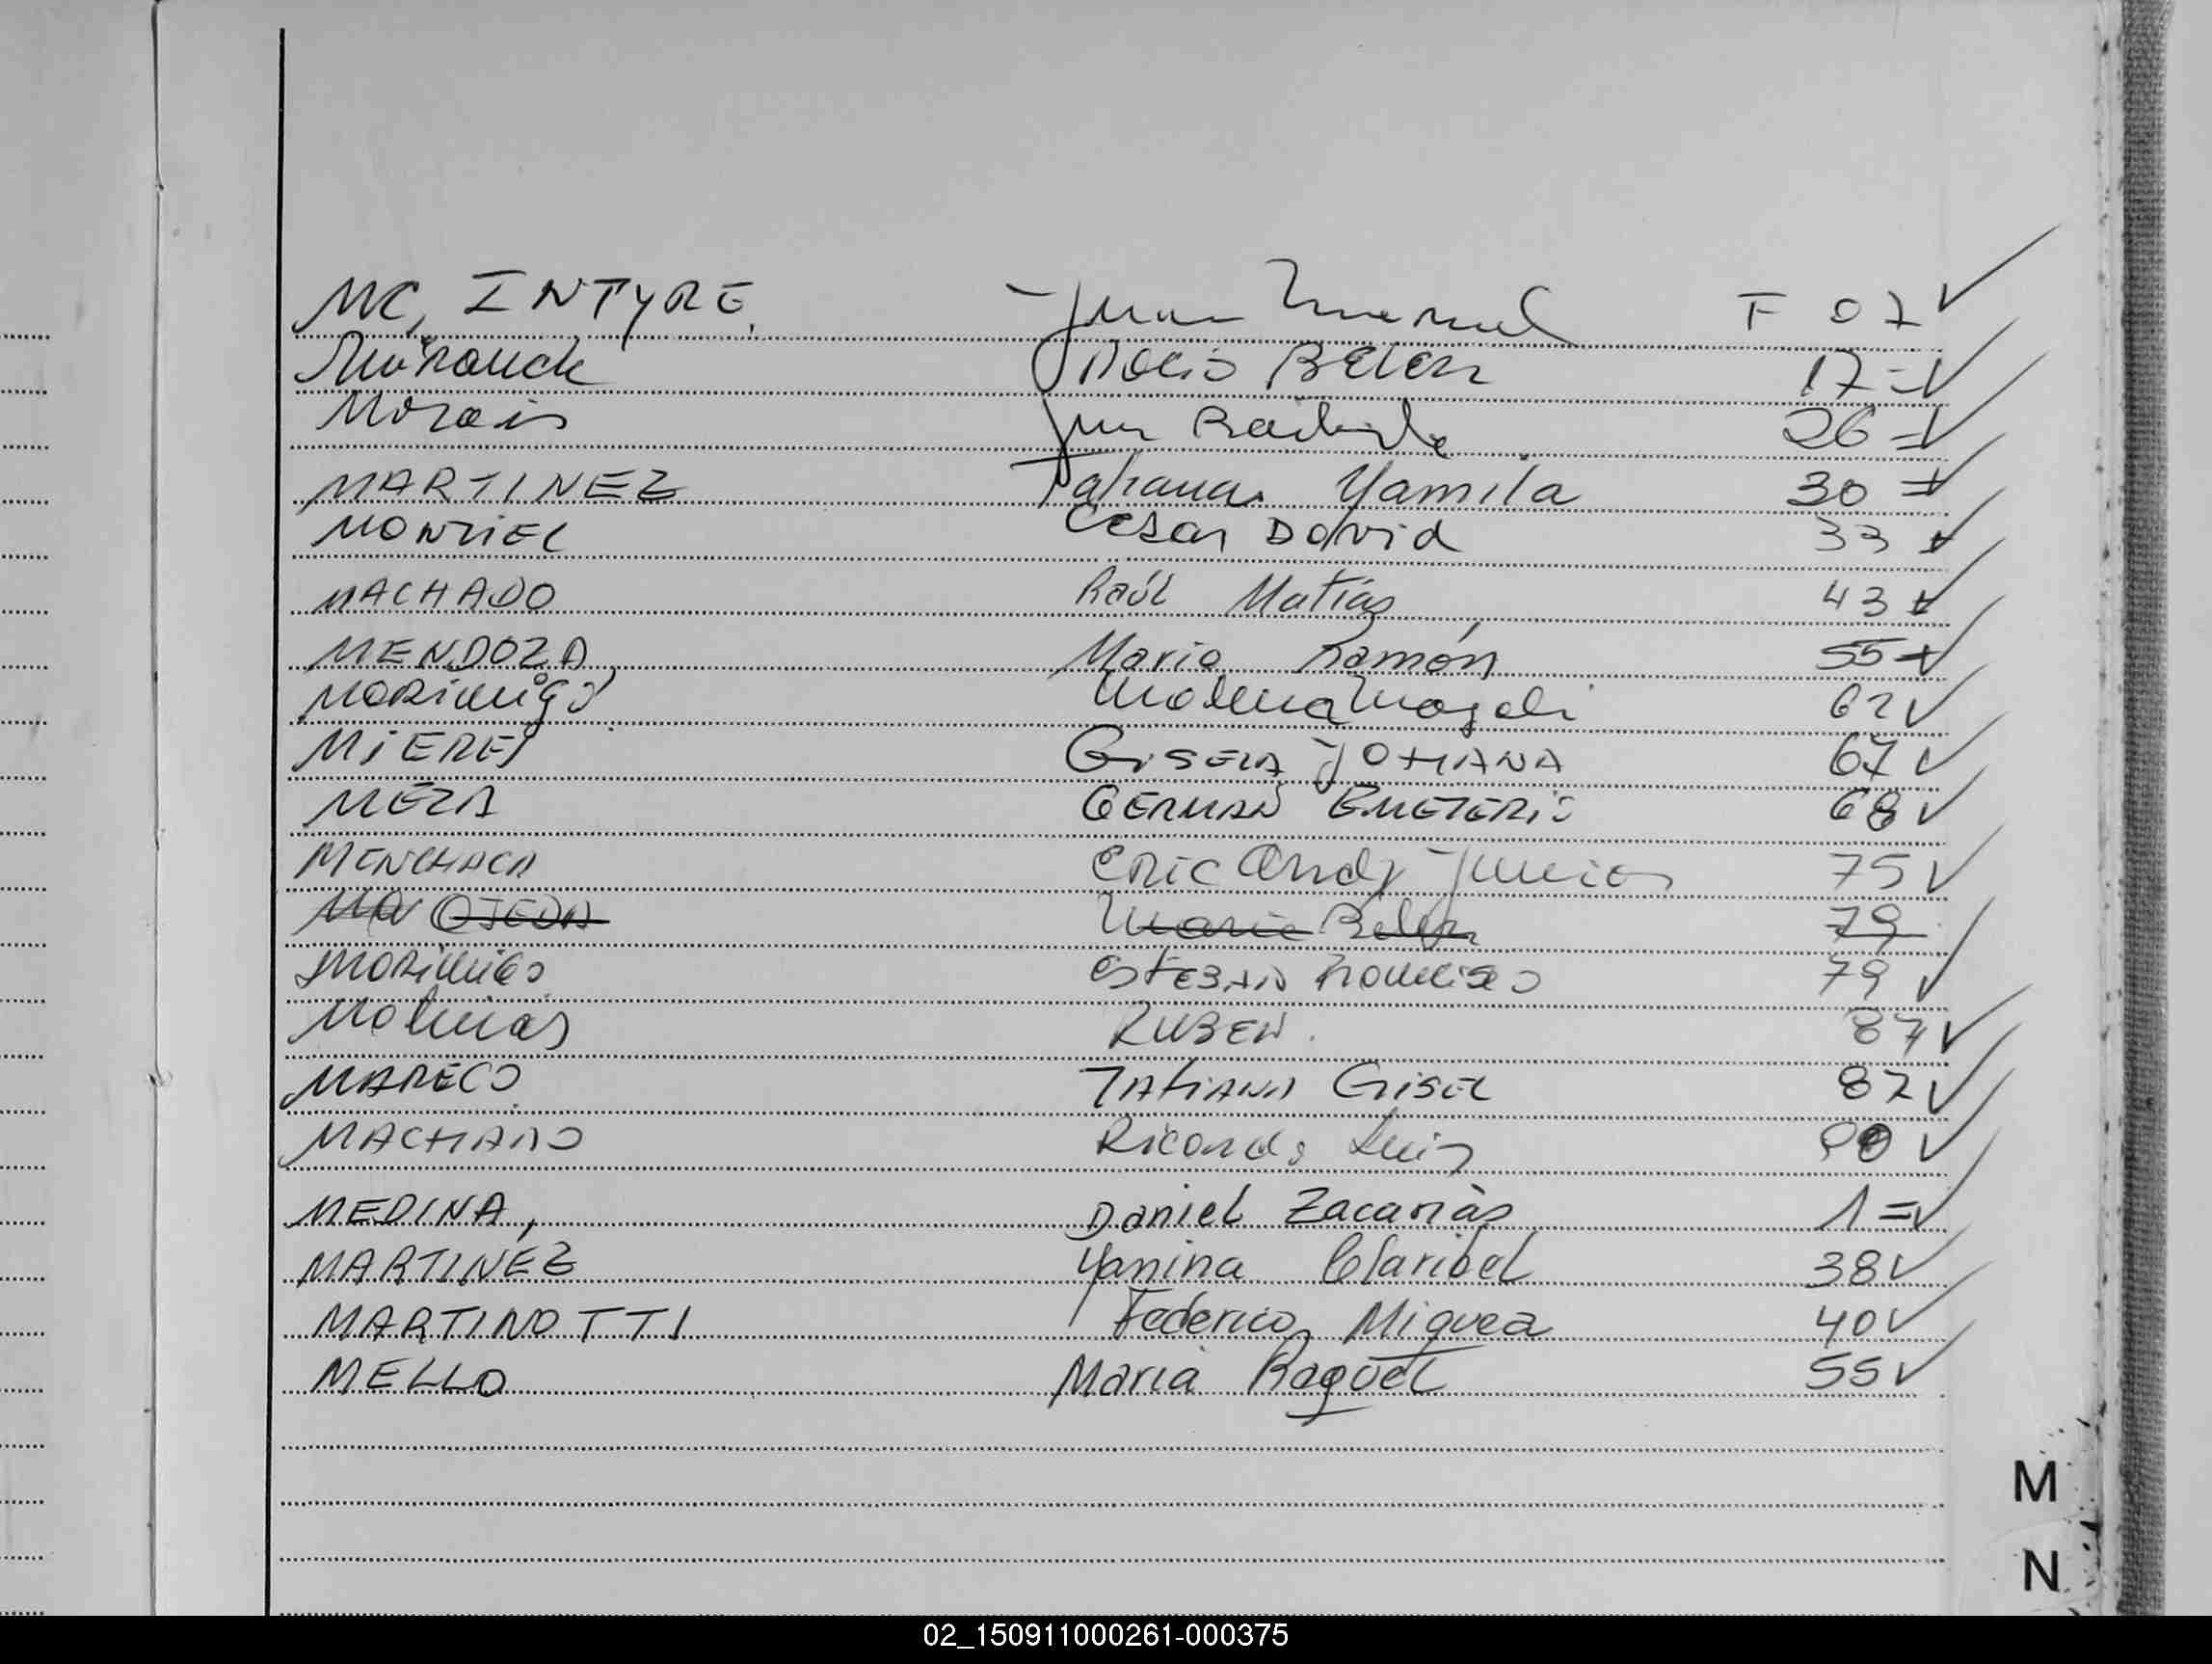 MC, INTYRE, Juan Manuel F 07 ✓
Rocio Belen 17 = ✓
Morais Juan Bautista 26 = ✓
MARTINEZ Tatiana Yamila 30 = ✓
MONTIEL Cesar David 33 ✓
MACHADO Raúl Matías 43 ✓
MENDOZA Mario Ramón 55 ✓
MORiniGO Malena Magali 62 ✓
MiERES GISELA JOHANA 67 ✓
MEZA GERMAN EMETERIO 68 ✓
MENCHACA ERIC Andy Junior 75 ✓
OJEDA Maria Belen 79
MORiniGO ESTEBAN 79 ✓
Molinas RUBEN. 87 ✓
MARECO TATIANA GISEL 87 ✓
MACHADO Ricardo Luis ✓
MEDINA, Daniel Zacarías 1 = ✓
MARTINEZ Yanina Claribel 38 ✓
MARTINOTTI Federico 40 ✓
MELLO Maria Raquel 55 ✓
M
N
02_150911000261-000375